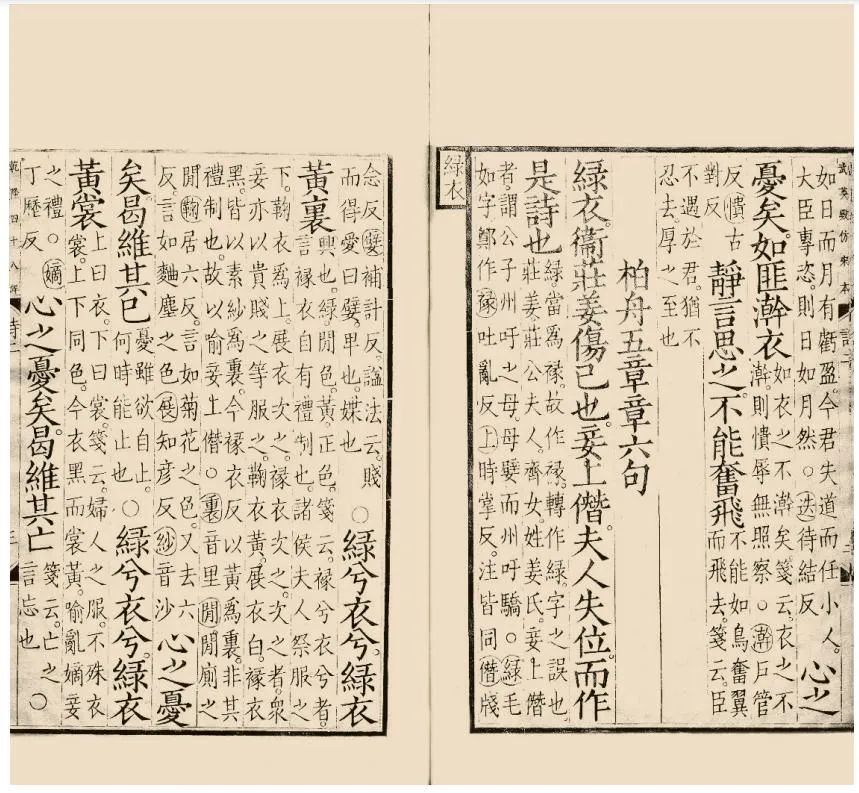 武英殿仿宋本
如日而月有虧盈。今君失道而任小人。大臣專恣。則日如月然。○迭待結反心之
憂矣。如匪澣衣。如衣之不澣矣。箋云。衣之不澣則憒辱無照察。○澣戶管
反憒古對反靜言思之。不能奮飛。不能如鳥奮翼而飛去。箋云。臣
不遇於君。猶不忍去。厚之至也
柏舟五章章六句
綠衣。衞莊姜傷己也。妾上僭。夫人失位。而作
是詩也。綠。當爲褖。故作褖。轉作綠。字之誤也。莊姜。莊公夫人。齊女。姓姜氏。妾上僭
者。謂公子州吁之母。母嬖而州吁驕。○綠毛如字鄭作褖吐亂反上時掌反。注皆同僭牋
綠衣
念反嬖補計反。諡法云。賤而得愛曰嬖。卑也。媟也○綠兮衣兮。綠衣
黃裏。興也。綠。閒色。黃。正色。箋云。褖兮衣兮者。言褖衣自有禮制也。諸侯夫人祭服之
下。鞠衣爲上。展衣次之。褖衣次之。次之者。衆妾亦以貴賤之等服之。鞠衣黃。展衣白。褖衣
黑。皆以素紗爲裏。今褖衣反以黃爲裏。非其禮制也。故以喻妾上僭。○裏音里閒閒廁之
閒鞠居六反。言如菊花之色。又去六反。言如麴塵之色展知彥反紗音沙心之憂
矣。曷維其已。憂雖欲自止。何時能止也○綠兮衣兮。綠衣
黃裳。上曰衣。下曰裳。箋云。婦人之服。不殊衣裳。上下同色。今衣黑而裳黃。喻亂嫡妾
之禮。○嫡丁歷反心之憂矣。曷維其亡。箋云。亡之言忘也○
乾隆四十八年